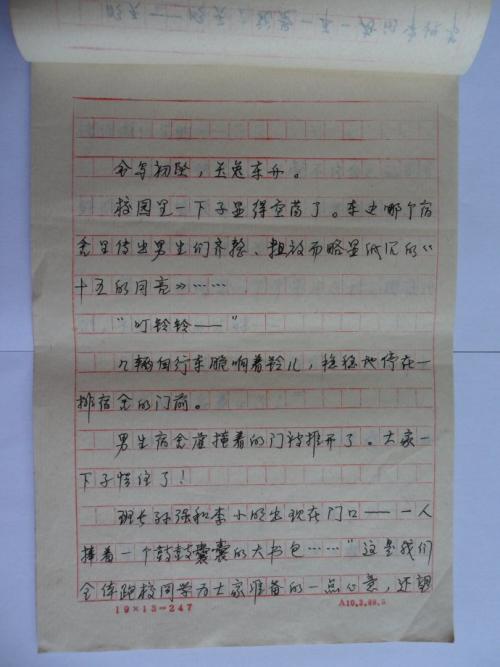 金乌初坠，玉兔东升。
校园里一下子显得空荡了。东边哪个宿
舍里传出男生们齐整、粗放而略显低沉的《
十五的月亮》……
“叮铃铃——”
几辆自行车脆响着铃儿，稳稳地停在一
排宿舍的门前。
男生宿舍虚掩着的门被推开了。大家一
下子愣住了！
班长孙强和李小明出现在门口——一人
捧着一个鼓鼓囊囊的大书包……“这是我们
全体跑校同学为大家准备的一点心意，还望
19×13=247